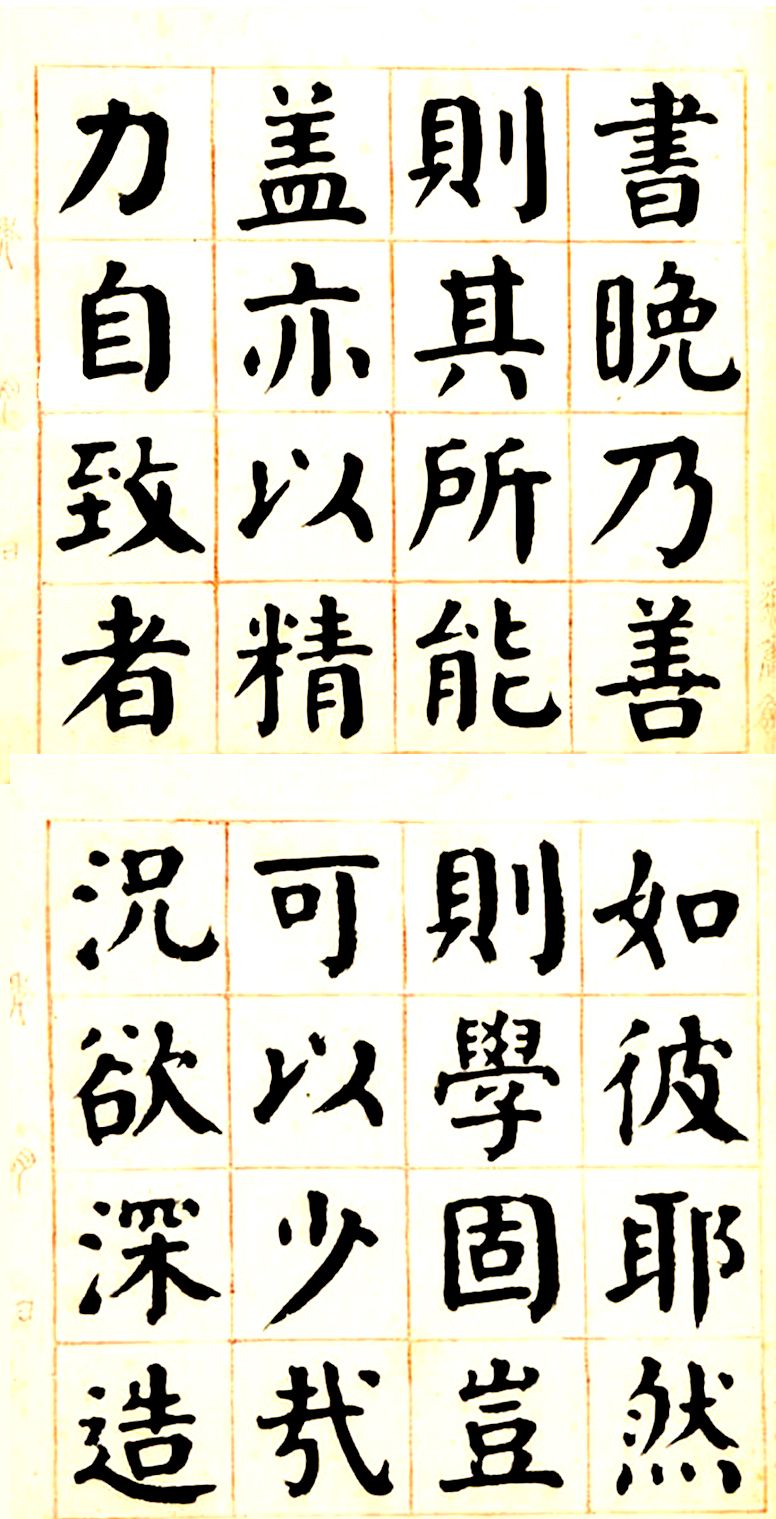 書晩乃善
則其所能
盖亦以精
力自致者
如彼耶然
則學固豈
可以少㢤
況欲深造